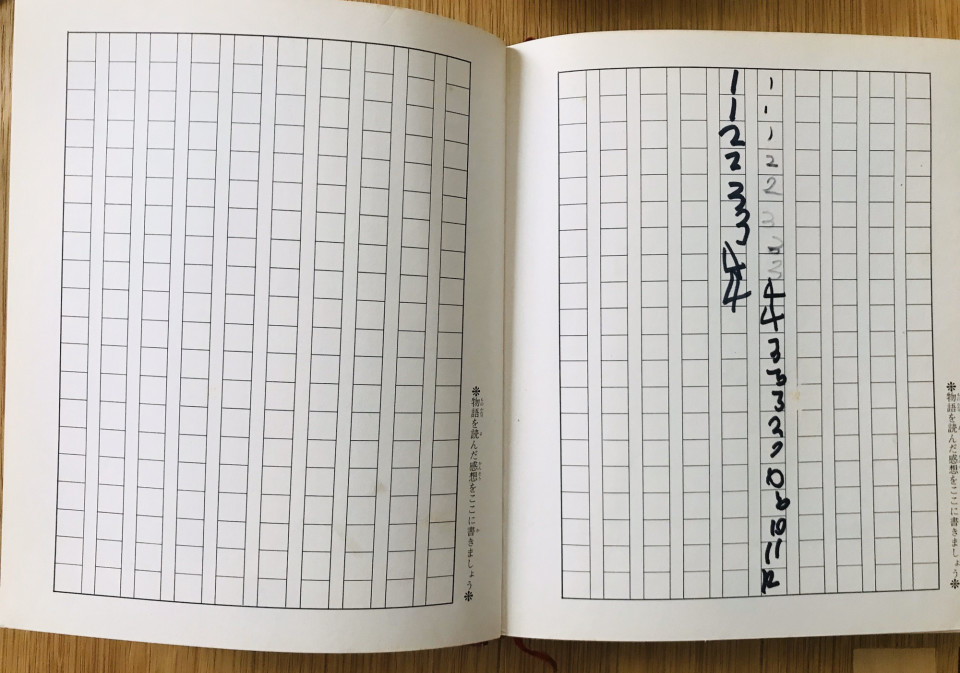 1 1 1 2 2 3 3 3 4 4 3 3 2 10 10 11 12
1 1 2 2 3 3 3 4 4
※物語を読んだ感想をここに書きましょう※
※物語を読んだ感想をここに書きましょう※